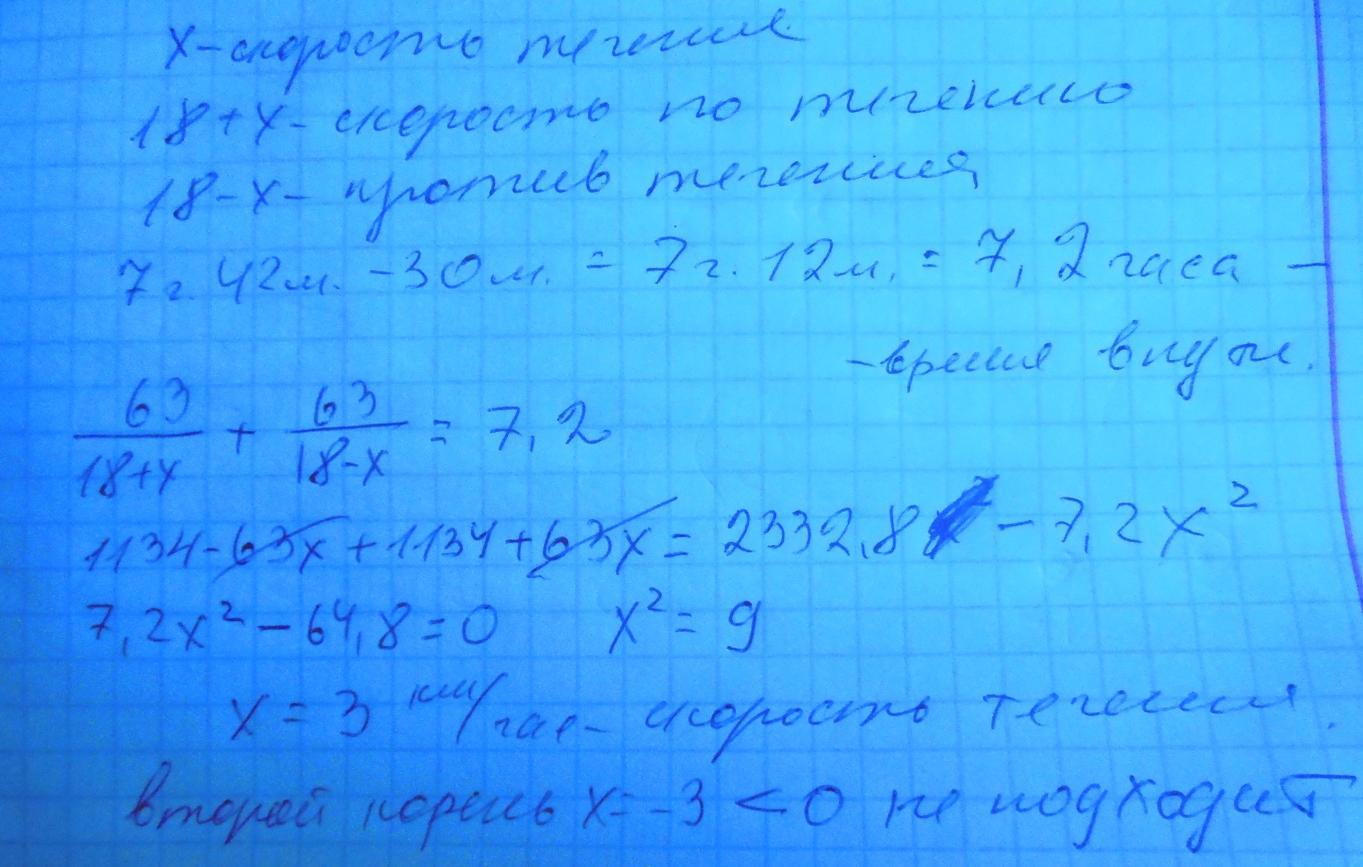 x - скорость течения
18+x - скорость по течению
18-x - против течения
7ч. 42м. - 30м. = 7ч. 12м. = 7,2 часа -
- время в пути.
63/(18+x) + 63/(18-x) = 7,2
1134-63x+1134+63x = 2332,8 - 7,2x²
7,2x² - 64,8 = 0 x² = 9
x = 3 км/час - скорость течения.
второй корень x = -3 < 0 не подходит